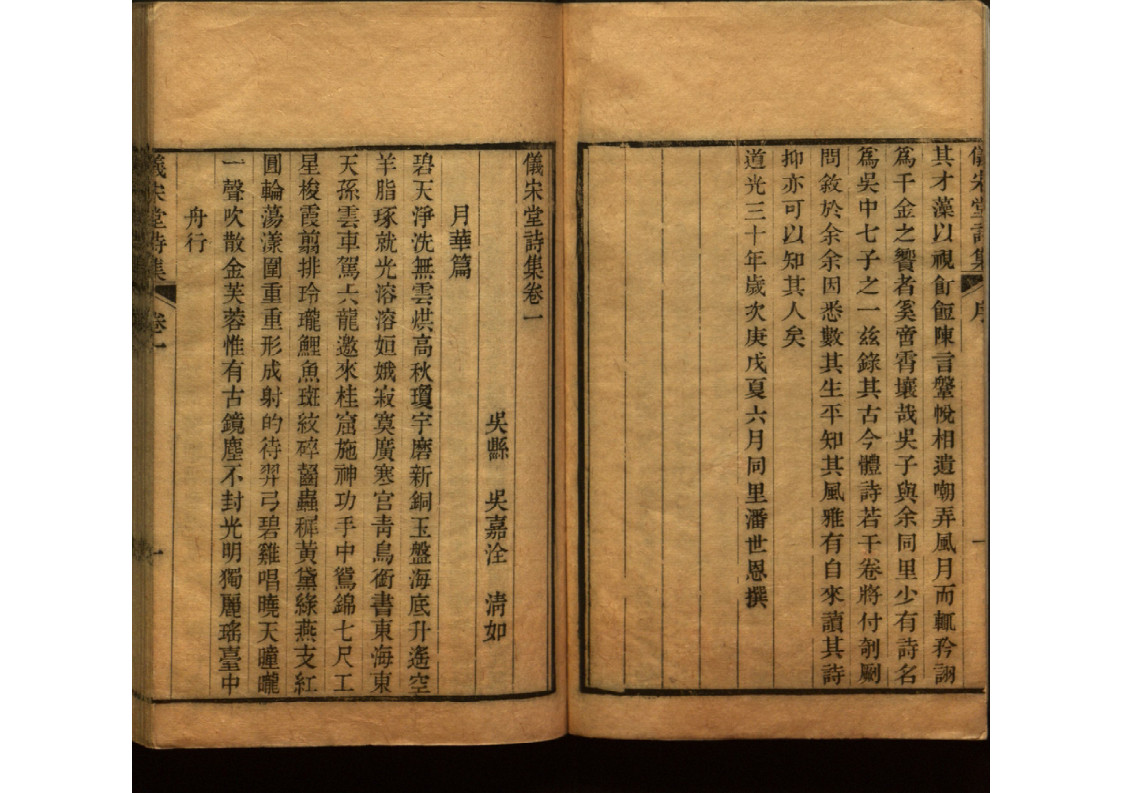 儀宋堂詩集 序 一
其才藻以視飣餖陳言鞶帨相遺嘲弄風月而輒矜詡
爲千金之饗者奚啻霄壤哉吳子與余同里少有詩名
爲吳中七子之一茲錄其古今體詩若干卷將付剞劂
問敘於余余因悉數其生平知其風雅有自來讀其詩
抑亦可以知其人矣
道光三十年歲次庚戌夏六月同里潘世恩撰
儀宋堂詩集卷一
吳縣 吳嘉洤 清如
月華篇
碧天淨洗無雲烘高秋瓊宇磨新銅玉盤海底升遙空
羊脂琢就光溶溶姮娥寂寞廣寒宮靑鳥銜書東海東
天孫雲車駕六龍邀來桂窟施神功手中鴛錦七尺工
星梭霞翦排玲瓏鯉魚斑紋碎齧蟲穉黃黛綠燕支紅
圓輪蕩漾圍重重形成射的待羿弓碧雞唱曉天曈曨
一聲吹散金芙蓉惟有古鏡塵不封光明獨麗瑤臺中
舟行
儀宋堂詩集 卷一 一